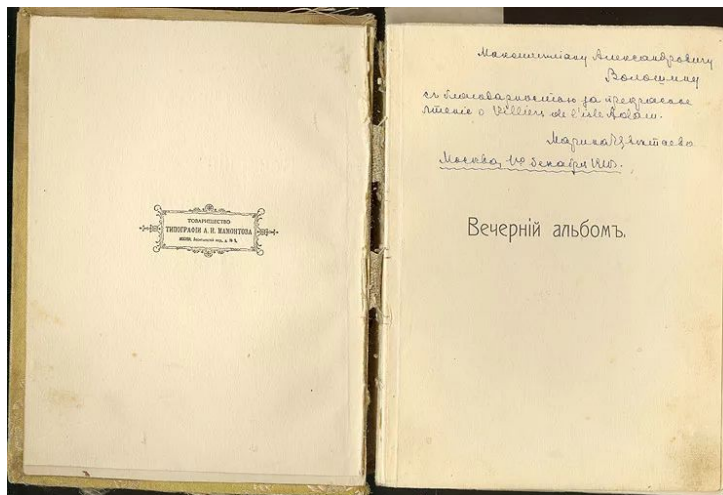 ТОВАРИЩЕСТВО
ТИПОГРАФІИ А. И. МАМОНТОВА
МОСКВА
Максимиліану Александровичу
Волошину
съ благодарностью за прекрасное
чтеніе о Villiers de l'isle Adam.
Марина Цвѣтаева
Москва, 1го декабря 1910г.
Вечерній альбомъ.